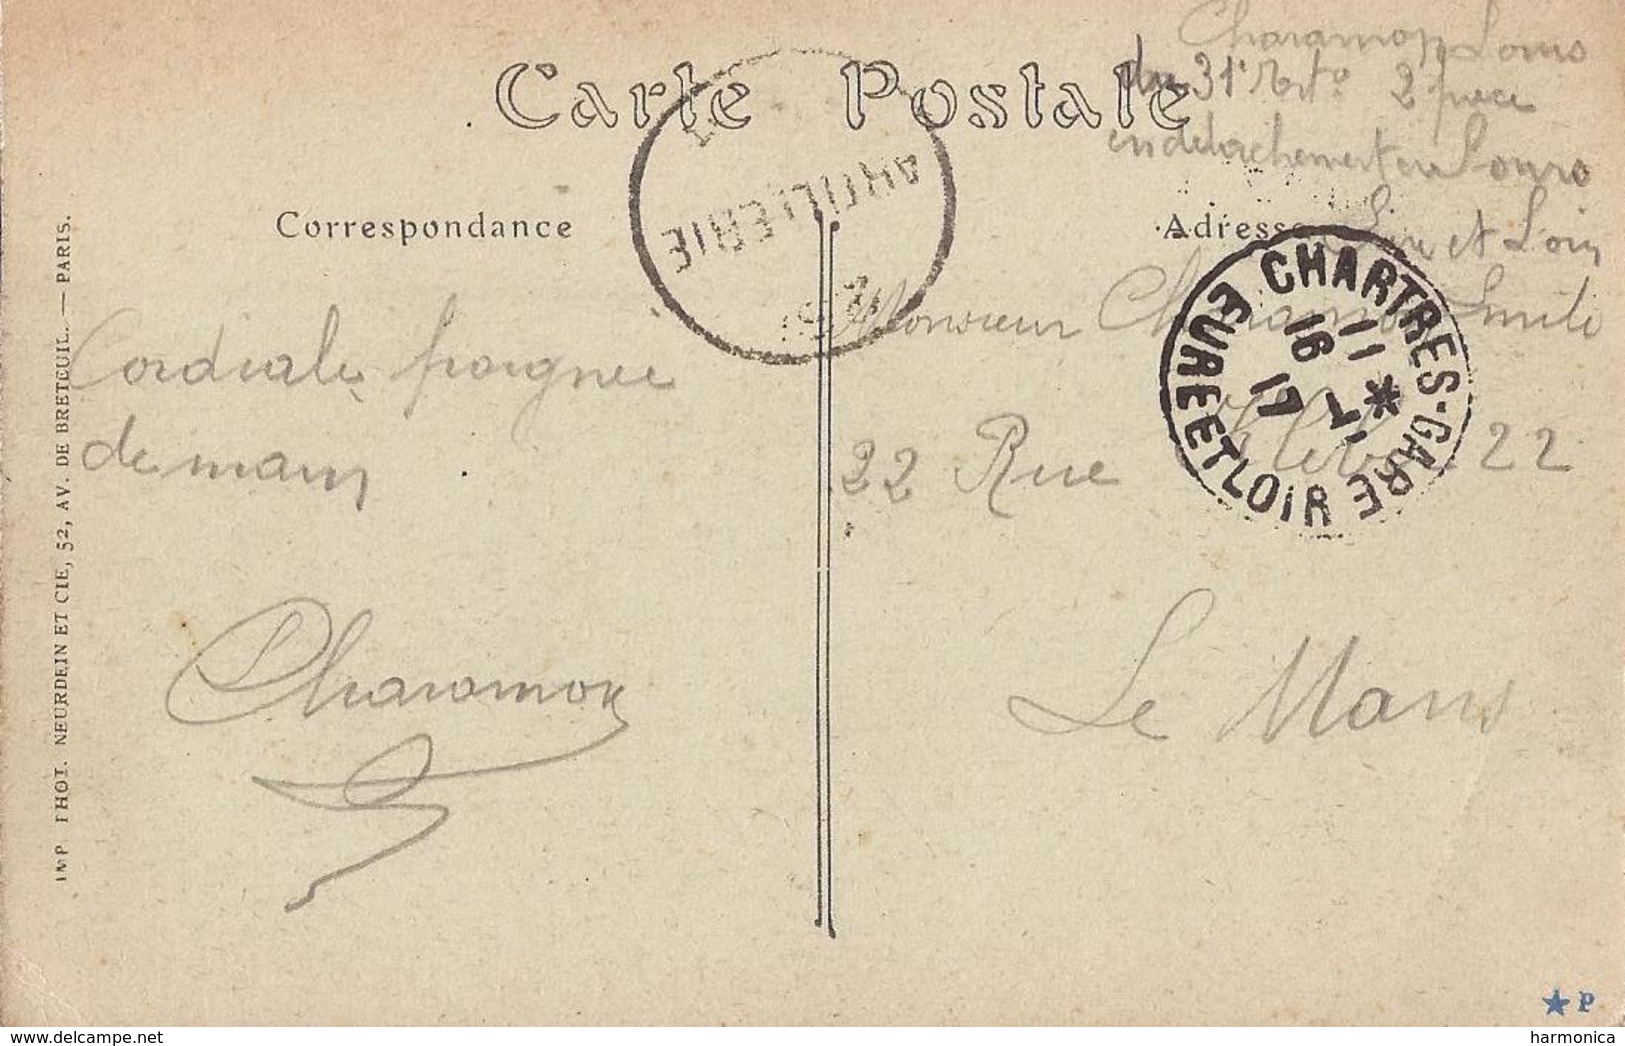 Charamon Louis
du 31e Arto 2 pièce
en détachement en Lours
Eure et Loir
Carte Postale
ARTILLERIE
Correspondance
Adresse
CHARTRES-GARE
11 * 16 -1. 17
EURE ET LOIR
Monsieur Charamon Emile
22 Rue 22
Le Mans
Cordiale poignée
de main
Charamon
IMP. PHOT. NEURDEIN ET CIE, 52, AV. DE BRETEUIL. — PARIS.
P
harmonica
delcampe.net